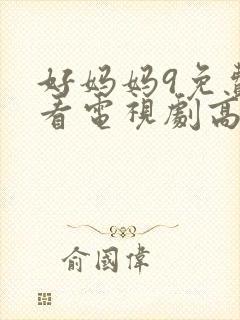 好妈妈9免費
看電視劇高
俞國偉